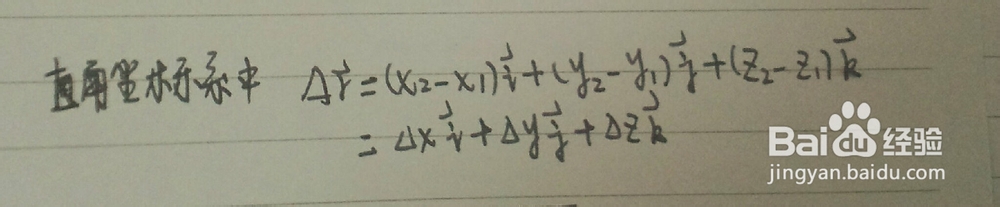 直角坐标系中 Δr⃗=(x₂-x₁)i⃗+(y₂-y₁)j⃗+(z₂-z₁)k⃗
=Δxi⃗+Δyj⃗+Δzk⃗
Baidu经验
jingyan.baidu.com